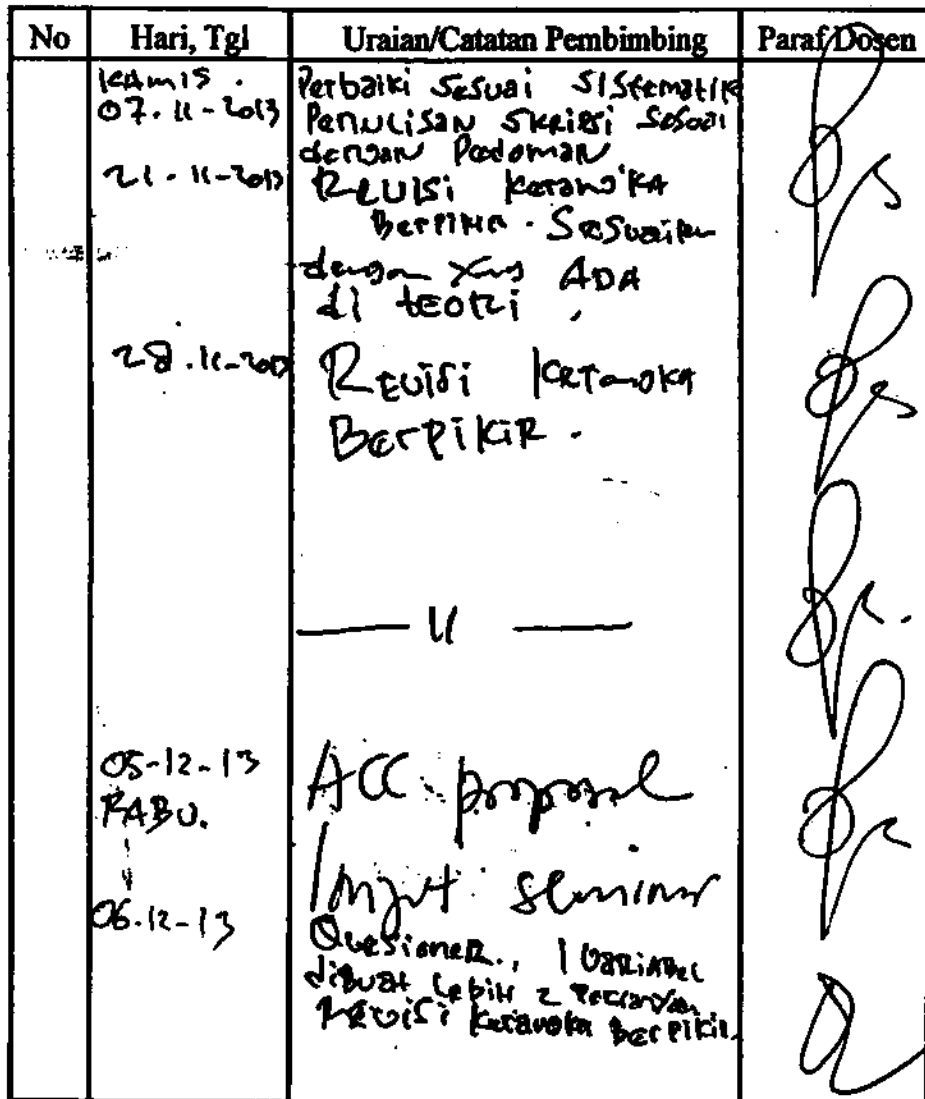 No Hari, Tgl Uraian/Catatan Pembimbing Paraf Dosen
KAMIS. Perbaiki Sesuai SIStematik
07. 11 - 2013 Penulisan Skripsi Sesuai
dengan Pedoman
21 - 11 - 2013 Revisi Kerangka
Berpikir - Sesuaikan
dengan yang ADA
di teori,
28 . 11 - 2013 Revisi Kerangka
Berpikir .
— 11 —
05-12-13 ACC proposal
RABU.
lanjut seminar
06.12-13
Quesioner., 1 Variabel
dibuat lebih 2 Pertanyaan
Revisi Kerangka Berpikir